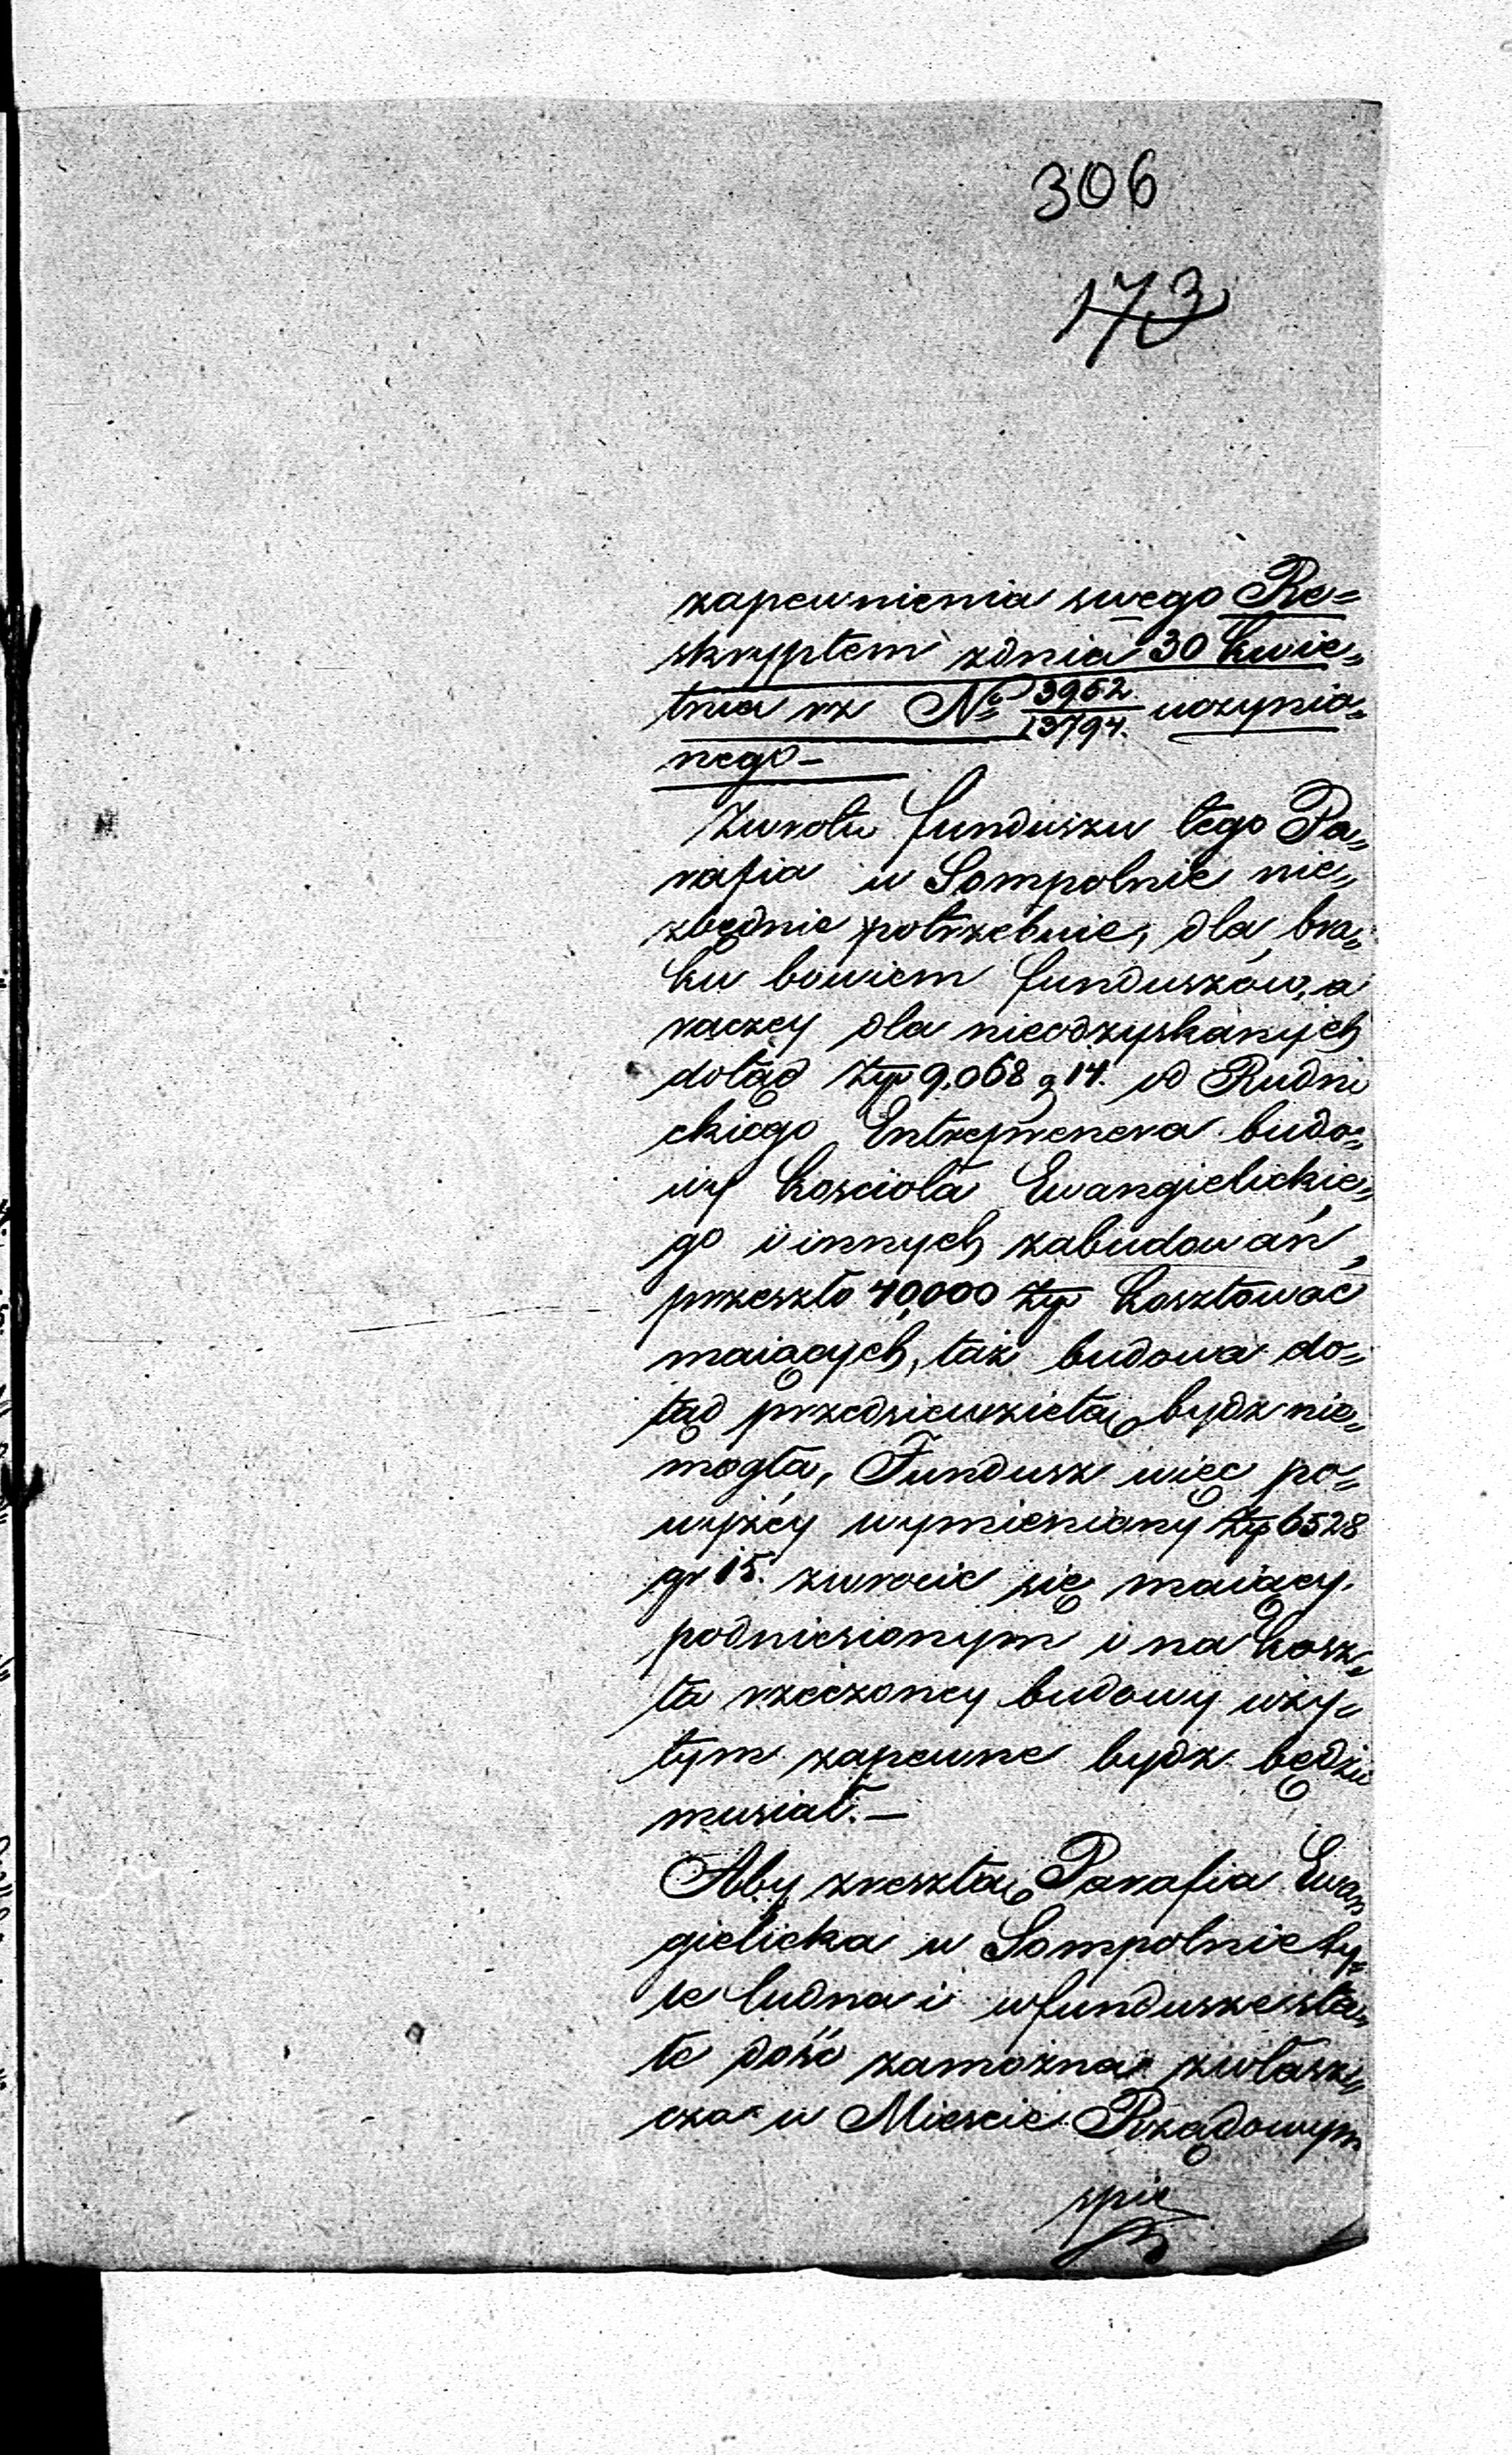 306
173
zapewnienia swego Re=
skryptem zdnia 30 kwie=
tnia rx No 3962/13794. uczynio=
nego –
Zwrotu funduszu tego Pa=
rafia w Sompolnie nie=
zbędnie potrzebuie, dla bra=
ku bowiem funduszów, a
raczey dla nieodzyskanych
dotąd Złp 9,068 g 14. od Rudni
ckiego Entreprenera budo=
wy kościoła Ewangielickie=
go i innych zabudowań,
przeszło 40,000 Złp kosztować
maiących, taż budowa do=
tąd przedsiewzietą bydz nie=
mogła, Fundusz więc po=
wyżéy wymieniony Złp 6528
gr 15. zwrocic się maiący,
podniesionym i na kosz=
ta rzeczoney budowy uży=
tym zapewne bydz będzie
musiał. –
Aby zresztą Parafia Ewan
gielicka w Sompolnie ty=
le ludna i w fundusze sta=
łe dość zamożna zwłasz=
cza w Miescie Rządowym